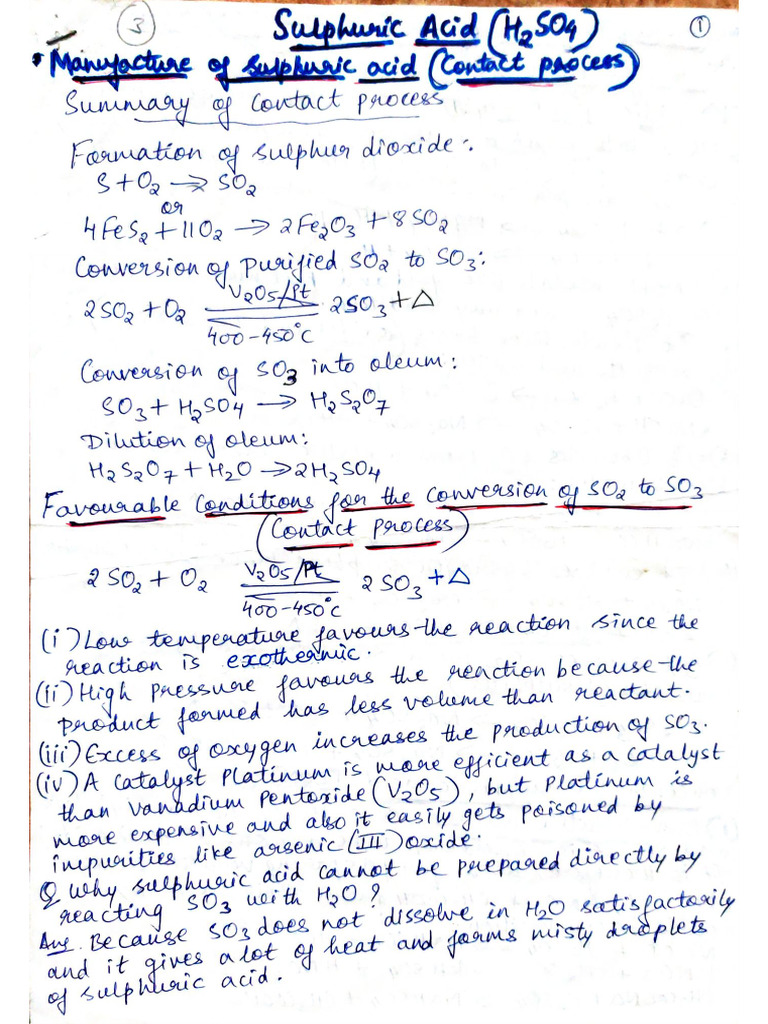 3
Sulphuric Acid (H₂SO₄)
①
* Manufacture of sulphuric acid (Contact process)
Summary of contact process
Formation of sulphur dioxide:
S + O₂ → SO₂
or
4FeS₂ + 11O₂ → 2Fe₂O₃ + 8SO₂
Conversion of purified SO₂ to SO₃:
2SO₂ + O₂ V₂O₅/Pt 2SO₃ + △
400-450°C
Conversion of SO₃ into oleum:
SO₃ + H₂SO₄ → H₂S₂O₇
Dilution of oleum:
H₂S₂O₇ + H₂O → 2H₂SO₄
Favourable Conditions for the conversion of SO₂ to SO₃
(Contact process)
2SO₂ + O₂ V₂O₅/Pt 2SO₃ + △
400-450°C
(i) Low temperature favours the reaction since the
reaction is exothermic.
(ii) High pressure favours the reaction because the
product formed has less volume than reactant.
(iii) Excess of oxygen increases the production of SO₃.
(iv) A catalyst platinum is more efficient as a catalyst
than vanadium pentoxide (V₂O₅), but platinum is
more expensive and also it easily gets poisoned by
impurities like arsenic (III) oxide.
Q Why sulphuric acid cannot be prepared directly by
reacting SO₃ with H₂O?
Ans. Because SO₃ does not dissolve in H₂O satisfactorily
and it gives a lot of heat and forms misty droplets
of sulphuric acid.